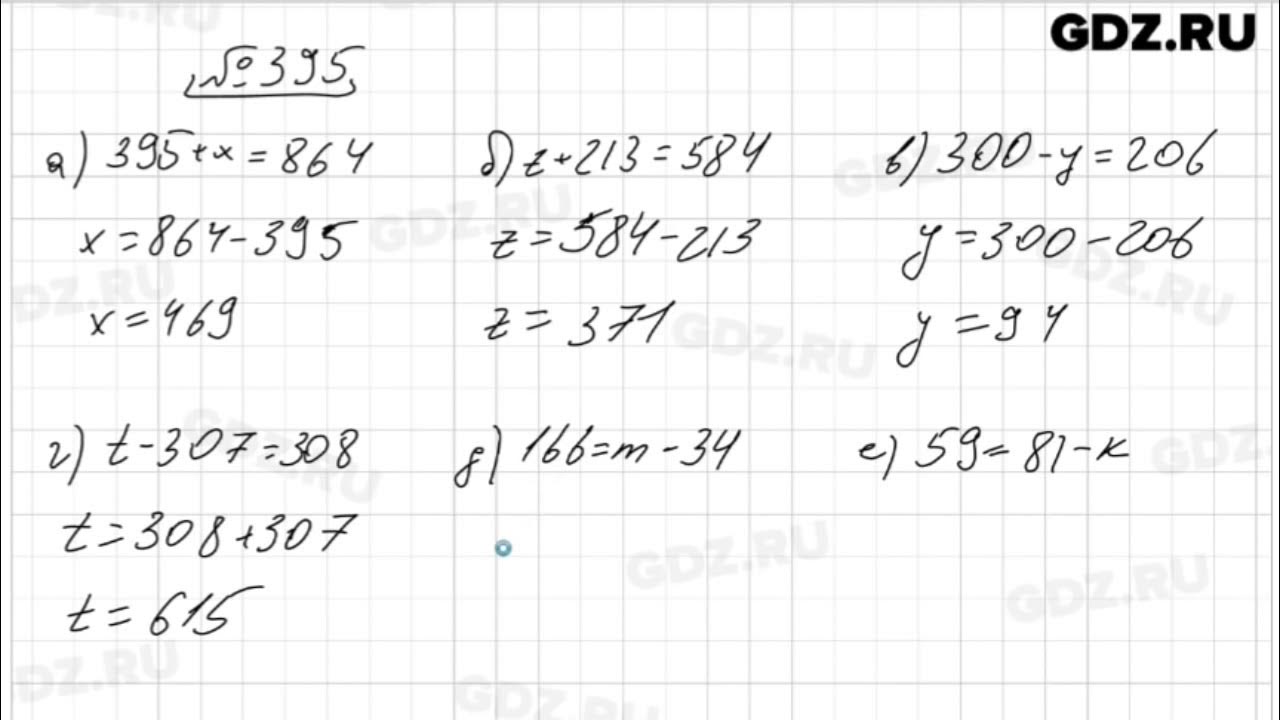 GDZ.RU
№395
а) 395+x=864
x=864-395
x=469
б) z+213=584
z=584-213
z=371
в) 300-y=206
y=300-206
y=94
г) t-307=308
t=308+307
t=615
д) 166=m-34
е) 59=81-к
GDZ.RU
GDZ.RU
GDZ.RU
GDZ.RU
GDZ.RU
GDZ.RU
GDZ.RU
GDZ.RU
GDZ.RU
GDZ.RU
GDZ.RU